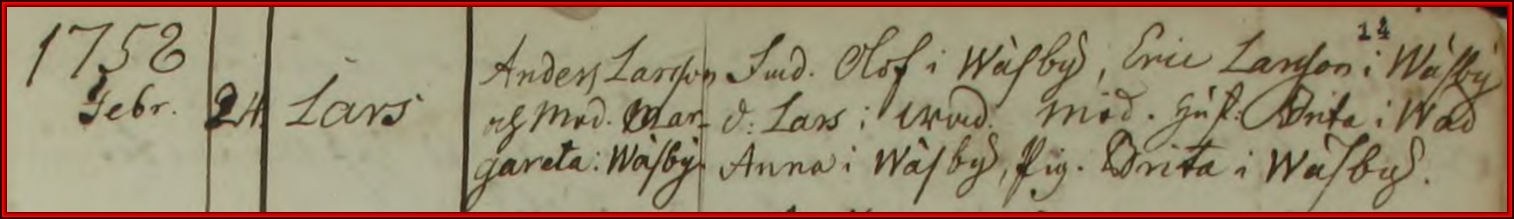 1758
14
Febr. 24. Lars
Anders Larsson Smd. Olof i Wäsby, Eric Larsson i Wäsby
och Mod. Mar- d: Lars i Wad. Mod. Hust: Brita i Wad
gareta: Wäsby Anna i Wäsby, Pig. Brita i Wäsby.